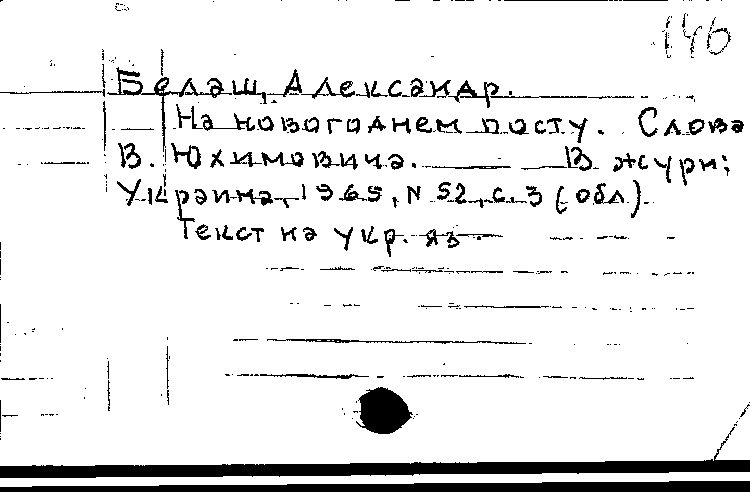 146
Белаш, Александр.
На новогоднем посту. Слова
В. Юхимовича. В журн:
Украина, 1965, N 52, с. 3 (обл).
Текст на укр. яз.